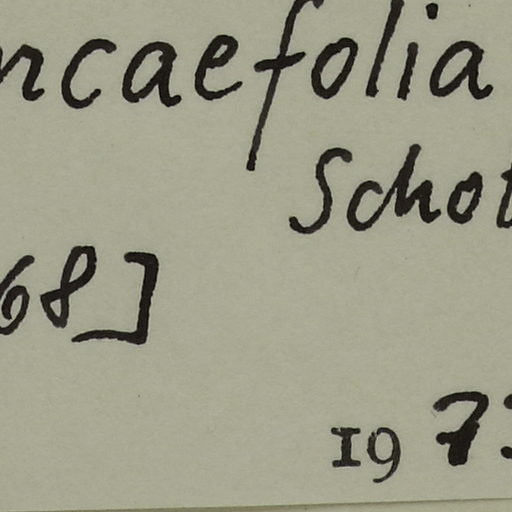 ncaefolia
Schot
68]
197